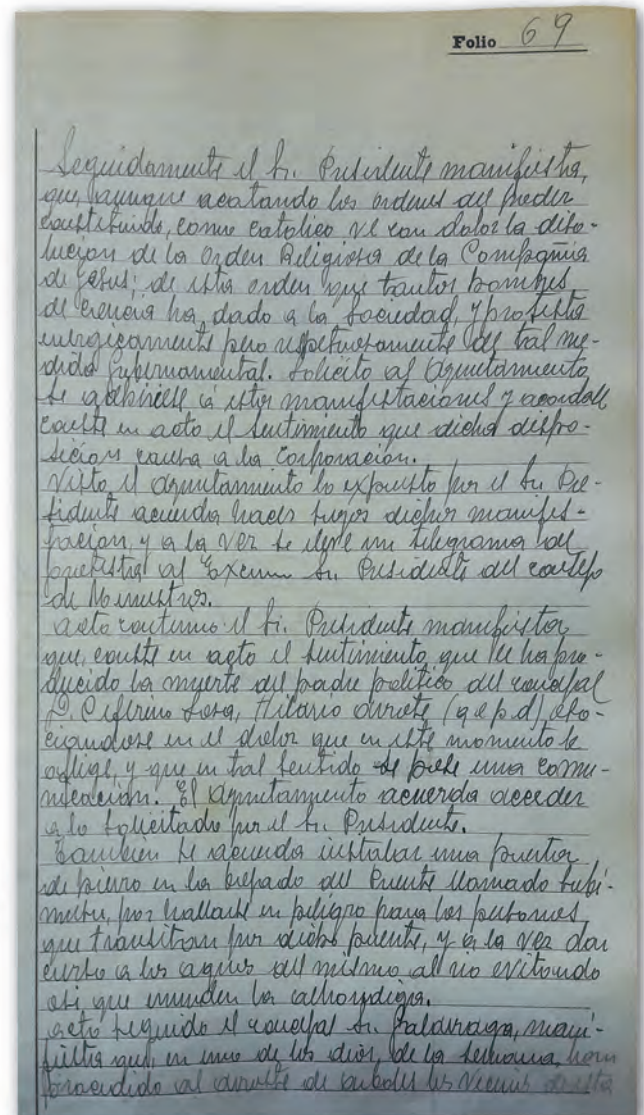 Folio 69
Seguidamente el Sr. Presidente manifiesta,
que, aunque acatando las ordenes del poder
constituido, como católico ve con dolor la diso-
lucion de la Orden Religiosa de la Compañia
de Jesus; de esta orden que tantos hombres
de ciencia ha dado a la Sociedad, y protesta
energicamente pero respetuosamente de tal me-
dida gubernamental. Solicito al Ayuntamiento
se adhiriese a estas manifestaciones y acordase
conste en acta el sentimiento que dicha dispo-
sicion causa a la Corporación.
Visto el Ayuntamiento lo expuesto por el Sr. Pre-
sidente acuerda hacer suyas dichas manifes-
tacion, y a la vez se eleve un telegrama de
protesta al Excmo Sr. Presidente del consejo
de Ministros.
Acto continuo el Sr. Presidente manifiesta
que, conste en acta el sentimiento que le ha pro-
ducido la muerte del padre politico del concejal
D. Ceferino Sosa, Hilario (q.e.p.d) aso-
ciandose en el dolor que en este momento le
aflige, y que en tal sentido se pase una comu-
nicacion. El Ayuntamiento acuerda acceder
a lo solicitado por el Sr. Presidente.
Tambien se acuerda instalar una puerta
de hierro en la del Puente llamado
por hallarse en peligro para las personas
que transitan por dicho puente, y a la vez dar
curso a las aguas del mismo al rio evitando
asi que inunden la calhondiga.
Acto seguido el concejal Sr. Galarraga, mani-
fiesta que, en uno de los dias, de la semana, han
procedido al de arboles los vecinos de esta